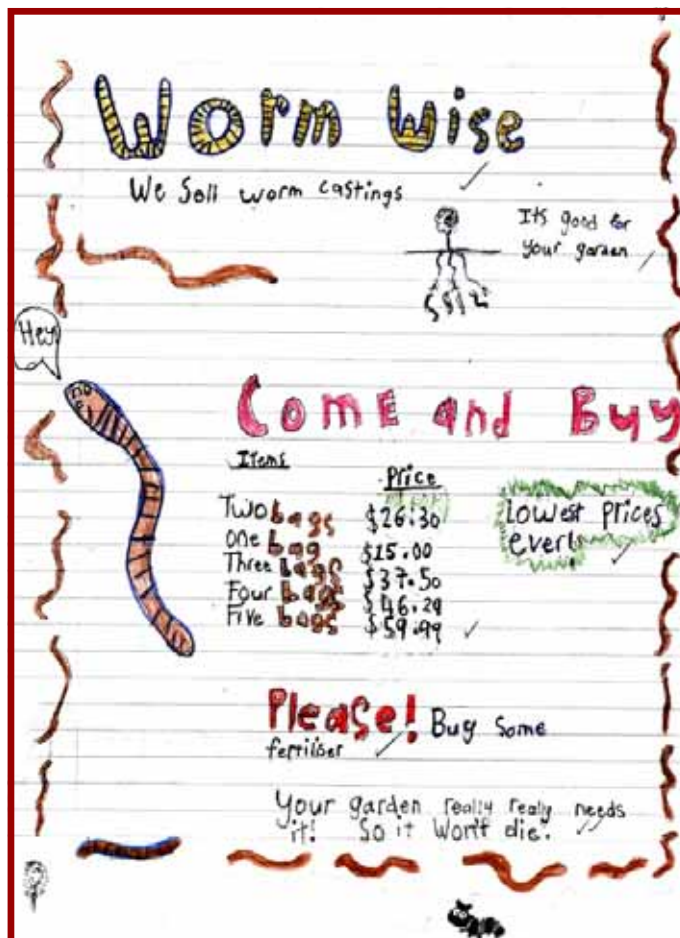 Worm Wise
We Sell worm castings
It's good for
your garden
Hey
Come and Buy
Items Price
Two bags $26.30
one bag $15.00
Three bags $37.50
Four bags $46.29
Five bags $59.99
Lowest prices
ever!
Please! Buy some
fertiliser
Your garden really really needs
it! So it Won't die.